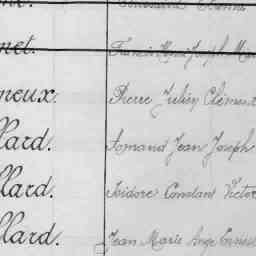 net. Francis Marie Joseph
neux. Pierre Julien Clément
llard. Armand Jean Joseph
llard. Isidore Constant Victor
llard. Jean Marie Ange Ernest